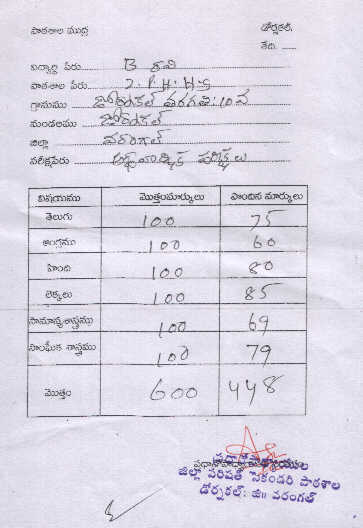 పాఠశాల ముద్ర డోర్నకల్,
తేది. ......
విద్యార్థి పేరు B రవి
పాఠశాల పేరు Z.P.H.H.S
గ్రామము డోర్నకల్ తరగతి: 10 వ
మండలము డోర్నకల్
జిల్లా వరంగల్
పరీక్షపేరు అర్ధవార్షిక పరీక్షలు
విషయము మొత్తంమార్కులు పొందిన మార్కులు
తెలుగు 100 75
ఆంగ్లము 100 60
హింది 100 80
లెక్కలు 100 85
సామాన్యశాస్త్రము 100 69
సాంఘీక శాస్త్రము 100 79
మొత్తం 600 448
జిల్లా పరిషత్ సెకండరి పాఠశాల
డోర్నకల్: జిll వరంగల్